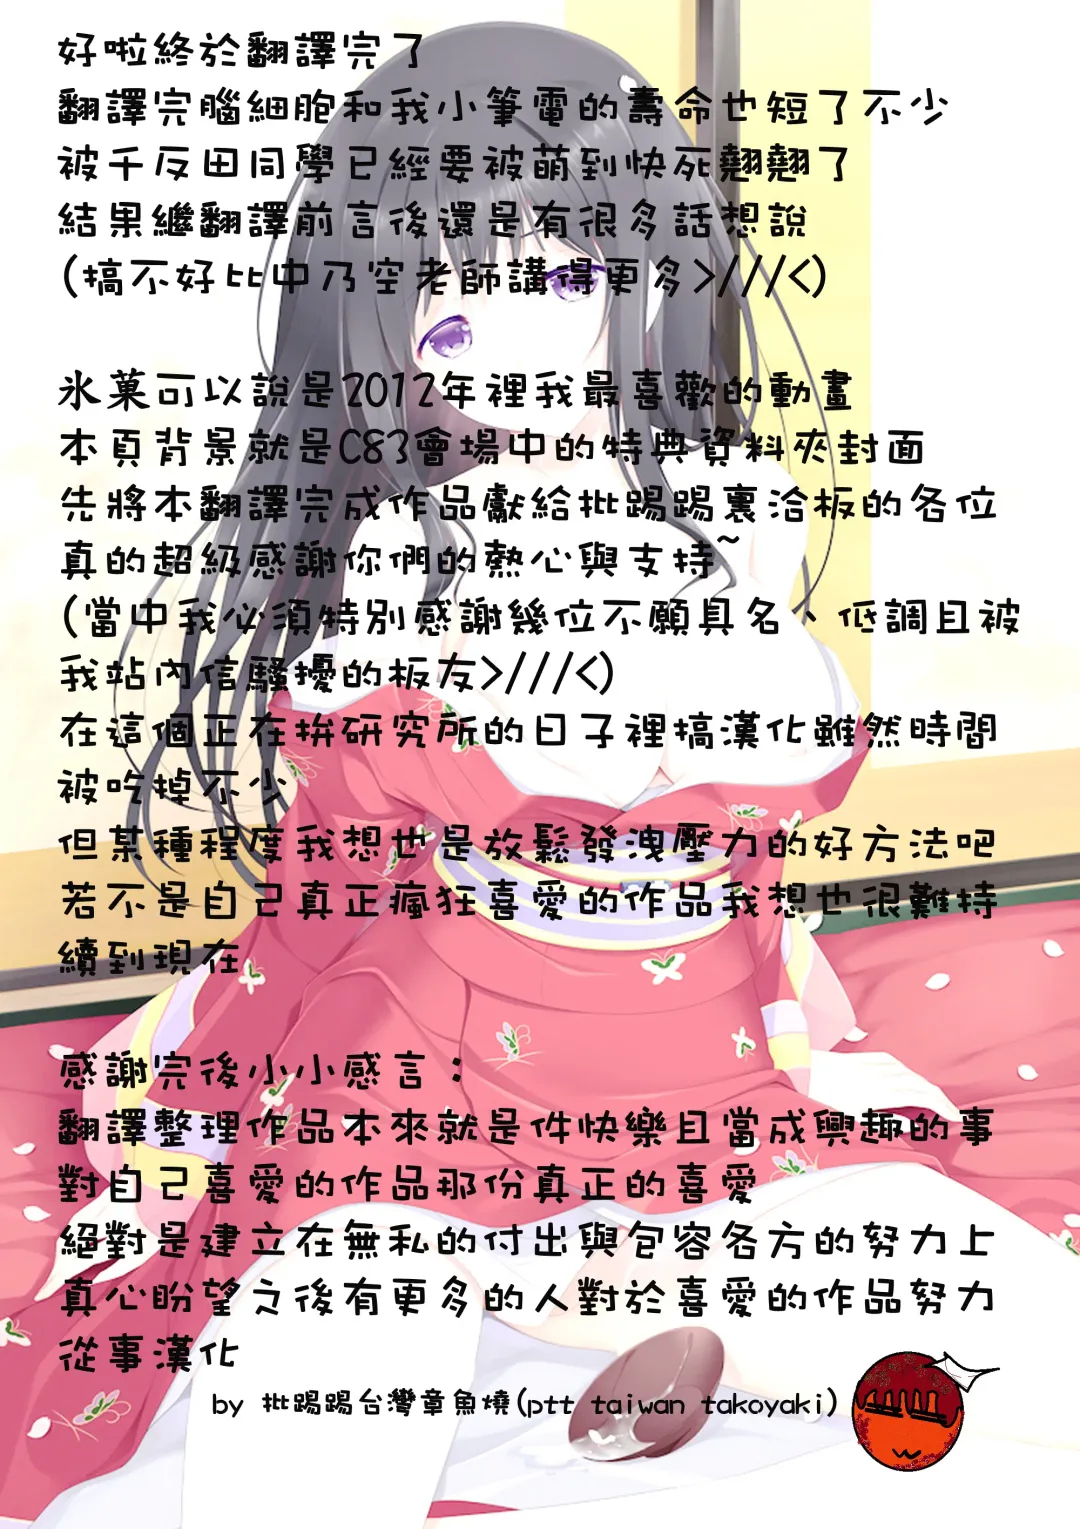 好啦終於翻譯完了
翻譯完腦細胞和我小筆電的壽命也短了不少
被千反田同學已經要被萌到快死翹翹了
結果繼翻譯前言後還是有很多話想說
(搞不好比中乃空老師講得更多>///<)
氷菓可以說是2012年裡我最喜歡的動畫
本頁背景就是C83會場中的特典資料夾封面
先將本翻譯完成作品獻給批踢踢裏洽板的各位
真的超級感謝你們的熱心與支持~
(當中我必須特別感謝幾位不願具名、低調且被
我站內信騷擾的板友>///<)
在這個正在拚研究所的日子裡搞漢化雖然時間
被吃掉不少
但某種程度我想也是放鬆發洩壓力的好方法吧
若不是自己真正瘋狂喜愛的作品我想也很難持
續到現在
感謝完後小小感言：
翻譯整理作品本來就是件快樂且當成興趣的事
對自己喜愛的作品那份真正的喜愛
絕對是建立在無私的付出與包容各方的努力上
真心盼望之後有更多的人對於喜愛的作品努力
從事漢化
by 批踢踢台灣章魚燒(ptt taiwan takoyaki)